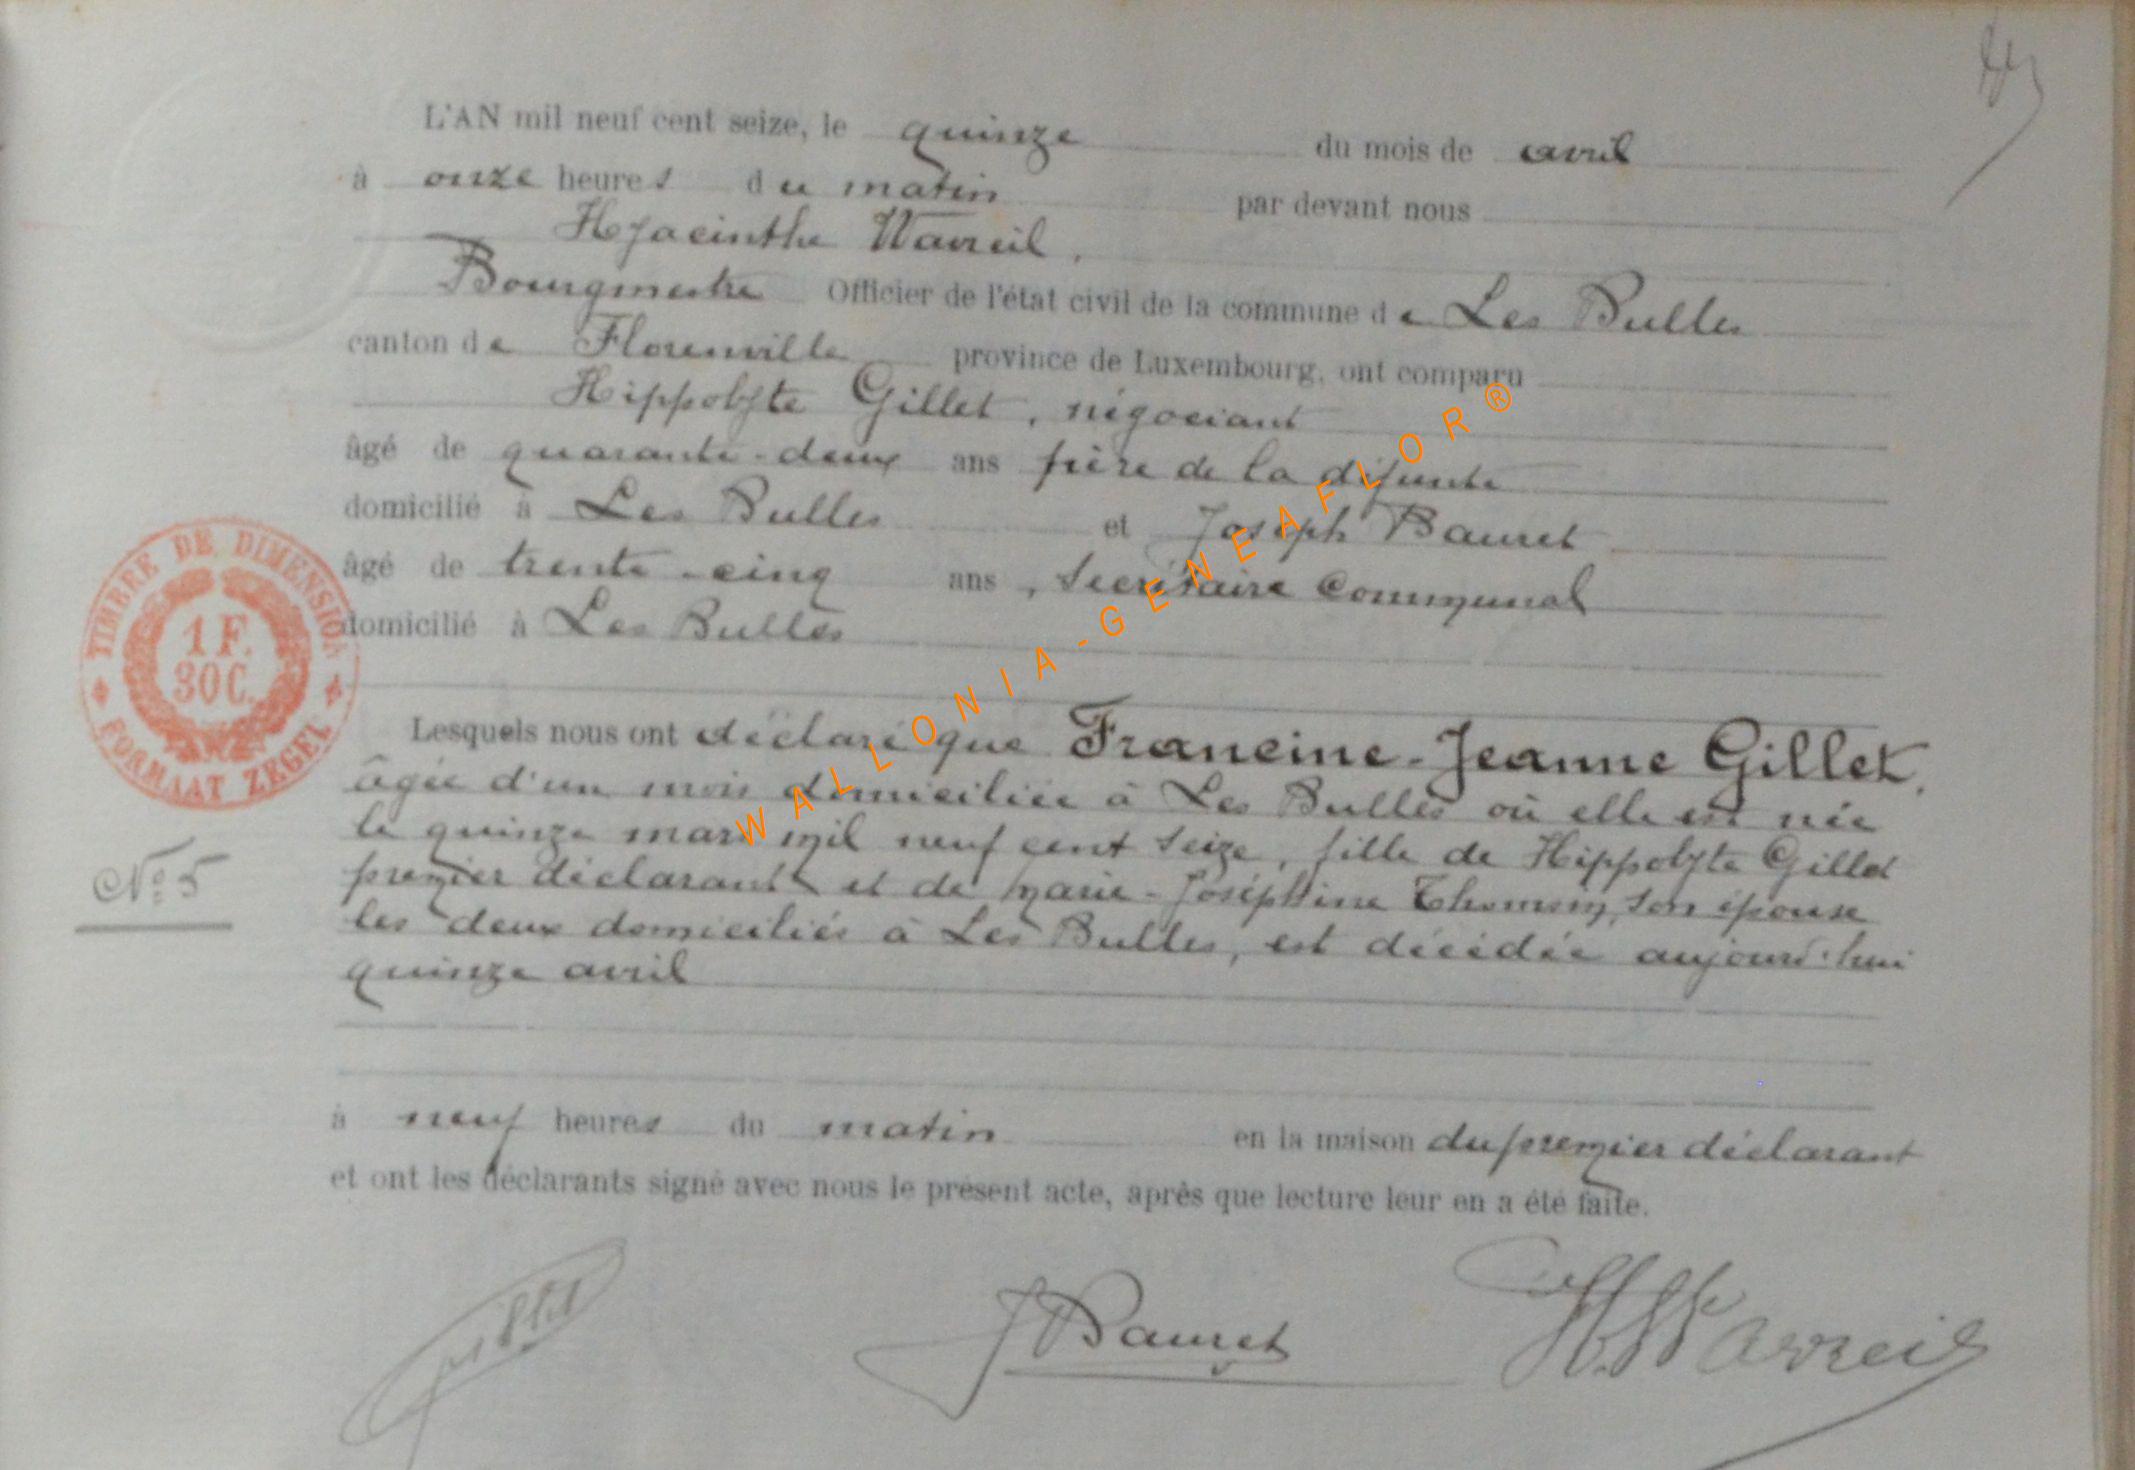 L'AN mil neuf cent seize, le quinze du mois de avril
à onze heures du matin par devant nous
Hyacinthe Wavreil,
Bourgmestre Officier de l'état civil de la commune de Les Bulles
canton de Florenville province de Luxembourg, ont comparu
Hippolyte Gillet, négociant
âgé de quarante-deux ans père de la défunte
domicilié à Les Bulles et Joseph Bauret
âgé de trente-cinq ans, Secrétaire Communal
domicilié à Les Bulles
Lesquels nous ont déclaré que Francine-Jeanne Gillet,
âgée d'un mois domiciliée à Les Bulles où elle est née
le quinze mars mil neuf cent seize, fille de Hippolyte Gillet
premier déclarant et de Marie-Joséphine son épouse
les deux domiciliés à Les Bulles, est décédée aujourd'hui
quinze avril
à neuf heures du matin en la maison du premier déclarant
et ont les déclarants signé avec nous le présent acte, après que lecture leur en a été faite.
Gillet J Bauret H. Wavreil
TIMBRE DE DIMENSION
1 F.
30 C.
FORMAAT ZEGEL
No 5
WALLONIA-GENEAFLOR®